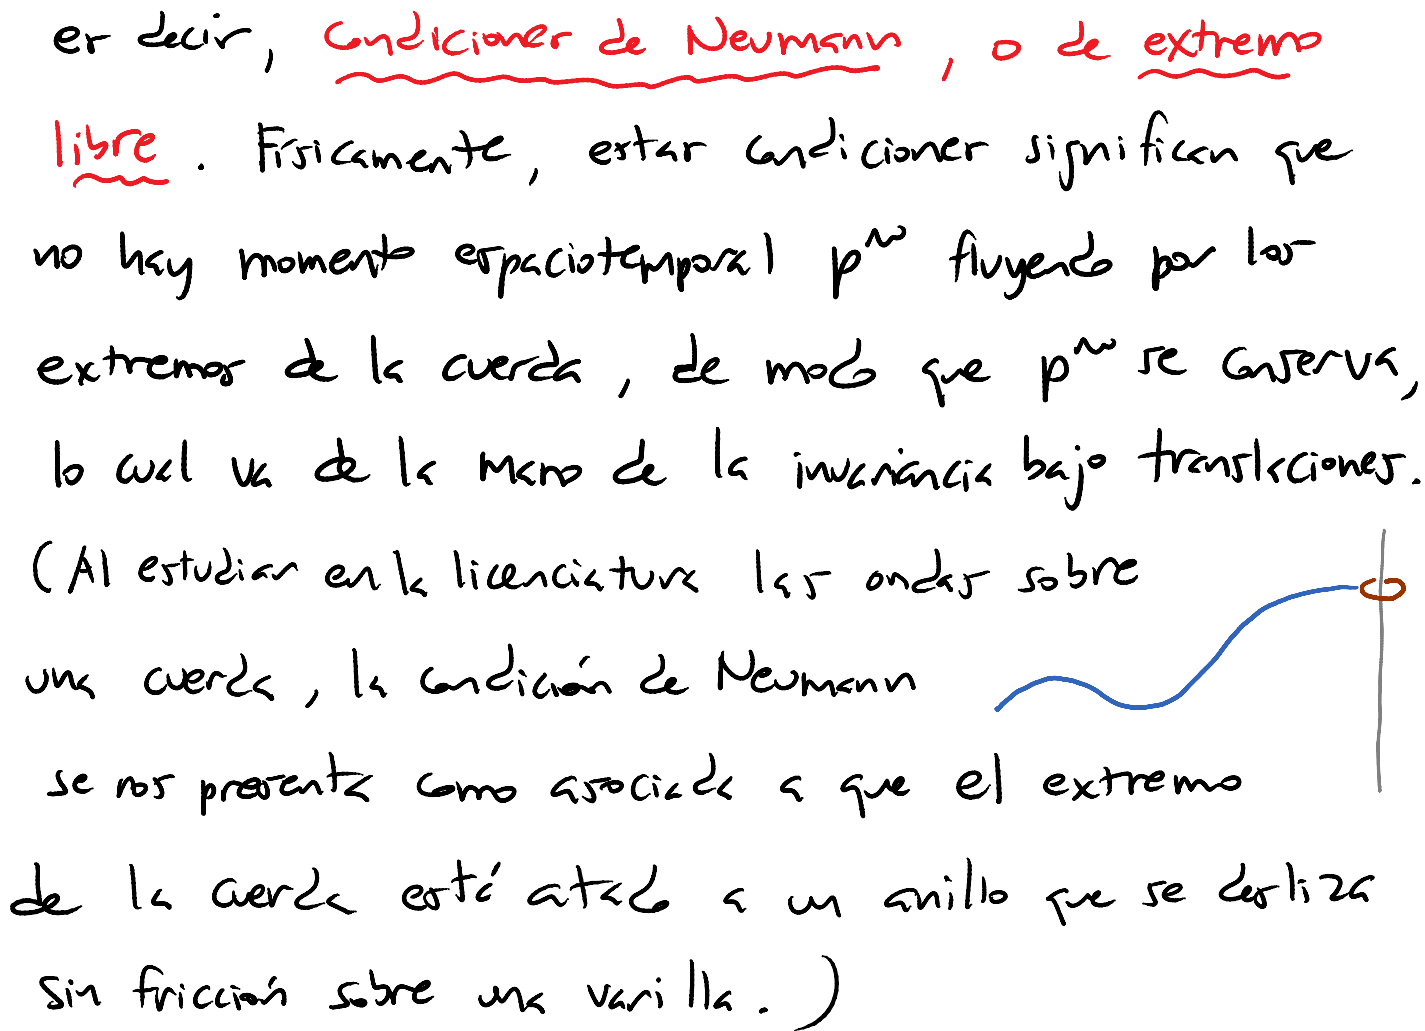 es decir, condiciones de Neumann, o de extremo
libre. Físicamente, estas condiciones significan que
no hay momento espaciotemporal p^μ fluyendo por los
extremos de la cuerda, de modo que p^μ se conserva,
lo cual va de la mano de la invariancia bajo translaciones.
(Al estudiar en la licenciatura las ondas sobre
una cuerda, la condición de Neumann
se nos presenta como asociada a que el extremo
de la cuerda está atado a un anillo que se desliza
sin fricción sobre una varilla.)